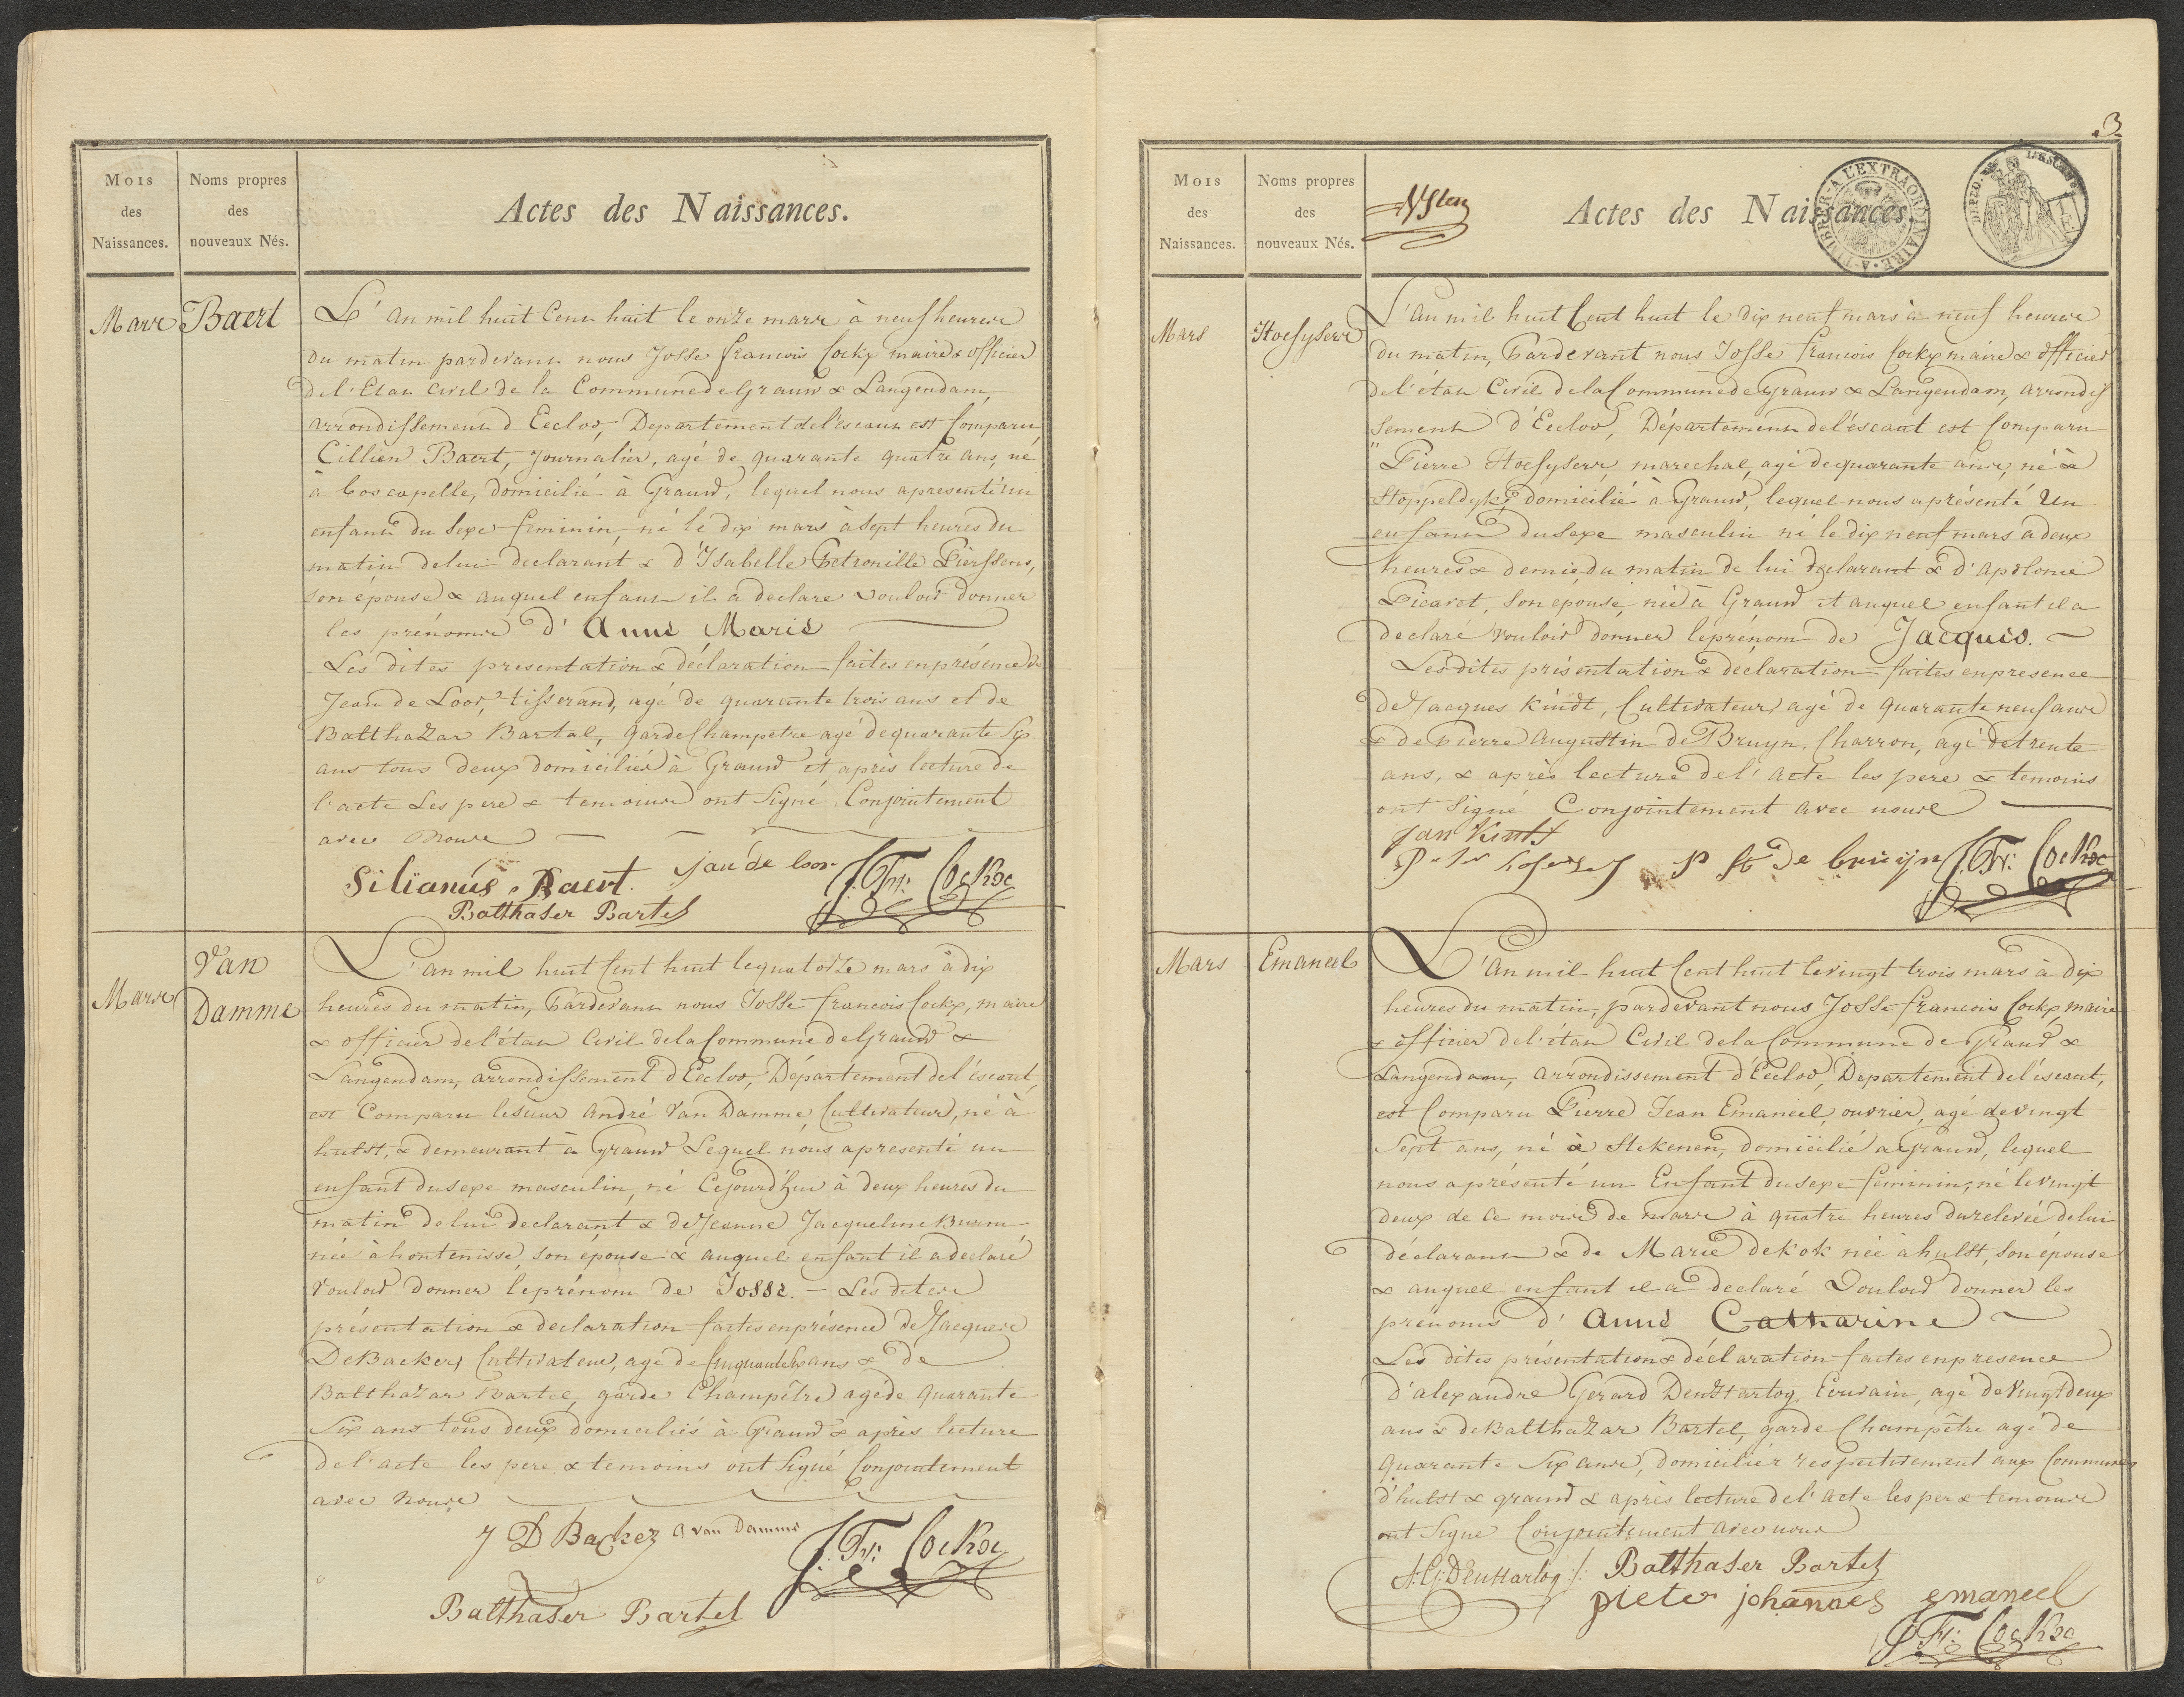 Mois
des
Naissances.
Noms propres
des
nouveaux Nés.
Actes des Naissances.
Mars
Baert
L'an mil huit Cent huit le onze mars à neuf heures
du matin pardevant nous Josse francois Cockx maire & officier
de l'Etat Civil de la Commune de Grauw & Langendam,
arrondissement d'Eecloo, Departement de l'escaut est Comparu
Cillien Baert, Journalier, agé de quarante quatre ans, né
à boscapelle, domicilié à Grauw, lequel nous a presenté un
enfant du Sexe feminin, né le dix mars à Sept heures du
matin de lui declarant & d'Isabelle Petronille Pierssens,
son épouse & auquel enfant il a declare vouloir donner
les prénoms d'Anne Marie
Les dites presentation & déclaration faites en présence de
Jean de Loor, tisserand, agé de quarante trois ans et de
Balthazar Bartel, garde Champetre agé de quarante Six
ans tous deux domiciliés à Grauw et après lecture de
l'acte Les pere & temoins ont Signé Conjointement
avec nous
Silianus Baert.
jan de loor
J. Fr: Cockx
Balthaser Bartel
Mars
Van
Damme
L'an mil huit Cent huit le quatorze mars à dix
heures du matin, Pardevant nous Josse francois Cockx, maire
& officier de l'état Civil de la Commune de Grauw &
Langendam, arrondissement d'Eecloo, Département de l'escaut,
est Comparu le sieur André Van Damme, Cultivateur, né à
hulst, & demeurant à Grauw Lequel nous a presenté un
enfant du sexe masculin, né Cejourd'hui à deux heures du
matin de lui declarant & de Jeanne Jacqueline Burm
née à hontenisse, son épouse & auquel enfant il a declaré
vouloir donner le prénom de Josse. — Les dites
présentation & declaration faites en présence de Jacques
De Backer, Cultivateur, agé de Cinquante ans & de
Balthazar Bartel, garde Champêtre agé de quarante
Six ans tous deux domiciliés à Grauw & après lecture
de l'acte les pere & temoins ont Signé Conjointement
avec nous
J D Backer
a van Damme
J. Fr: Cockx
Balthaser Bartel
3
Mois
des
Naissances.
Noms propres
des
nouveaux Nés.
Actes des Naissances.
A TIMBRER A L'EXTRAORDINAIRE
Mars
Hoefysers
L'an mil huit Cent huit le dix neuf mars à neuf heures
du matin, Pardevant nous Josse francois Cockx maire & officier
de l'état Civil de la Commune de Grauw & Langendam, arrondis
sement d'Eecloo, Département de l'éscaut est Comparu
Pierre Hoefysers, marechal, agé de quarante ans, né à
Stoppeldyk, domicilié à Grauw, lequel nous a présenté Un
enfant du sexe masculin né le dix neuf mars à deux
heures & demie du matin de lui declarant & d'apolonie
Picavet, son epouse, née à Grauw et auquel enfant il a
declaré vouloir donner le prénom de Jacques.
Les dites présentation & declaration faites en presence
de Jacques Kindt, Cultivateur agé de quarante neuf ans
& de Pierre Augustin de Bruyn, Charron, agé de trente
ans, & après lecture de l'acte les pere & temoins
ont Signé Conjointement avec nous
Jan Kintt
P de bruijn
J. Fr: Cockx
Mars
Emaneel
L'an mil huit Cent huit le vingt trois mars à dix
heures du matin, pardevant nous Josse francois Cockx maire
& officier de l'état Civil de la Commune de Grauw &
Langendam, arrondissement d'Eecloo, Departement de l'escaut,
est Comparu Pierre Jean Emaneel, ouvrier, agé de vingt
Sept ans, né à Stekenen, domicilié a Grauw, lequel
nous a présenté un Enfant du sexe feminin, né le vingt
deux de ce mois de mars à quatre heures de relevée de lui
déclarant & de Marie de kok née à hulst, son épouse
& auquel enfant il a declaré Vouloir donner les
prénoms d'Anne Catharine
Les dites présentation & déclaration faites en presence
d'alexandre Gerard Den Hartog, Ecrivain, agé de Vingt deux
ans & de Balthazar Bartel, garde Champêtre agé de
quarante Six ans, domiciliés respectivement aux Communes
d'hulst & grauw & après lecture de l'acte les pere & temoins
ont Signé Conjointement avec nous
A: G: Den Hartog
Balthaser Bartel
pieter johannes emaneel
J. Fr: Cockx